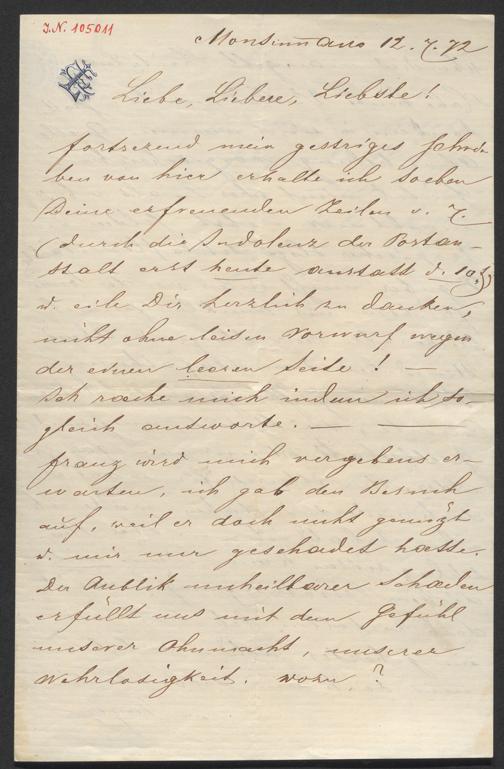 J.N. 105011
12. 7. 72
Liebe, Liebere, Liebste!
fortsetzend mein gestriges Schrei-
ben von hier erhalte ich soeben
Deine erfreuenden Zeilen v. 7.
(durch die Indolenz der Postan-
stalt erst heute anstatt d. 10t)
u. eile Dir herzlich zu danken,
nicht ohne leisen Vorwurf wegen
der einen leeren Seite! —
Ich räche mich indem ich so-
gleich antworte. — —
Franz wird mich vergebens er-
warten, ich gab den Besuch
auf, weil er doch nicht genützt
u. mir nur geschadet hätte.
Der Anblik unheilbarer Schäden
erfüllt uns mit dem Gefühl
unserer Ohnmacht, unserer
Wehrlosigkeit. wozu?